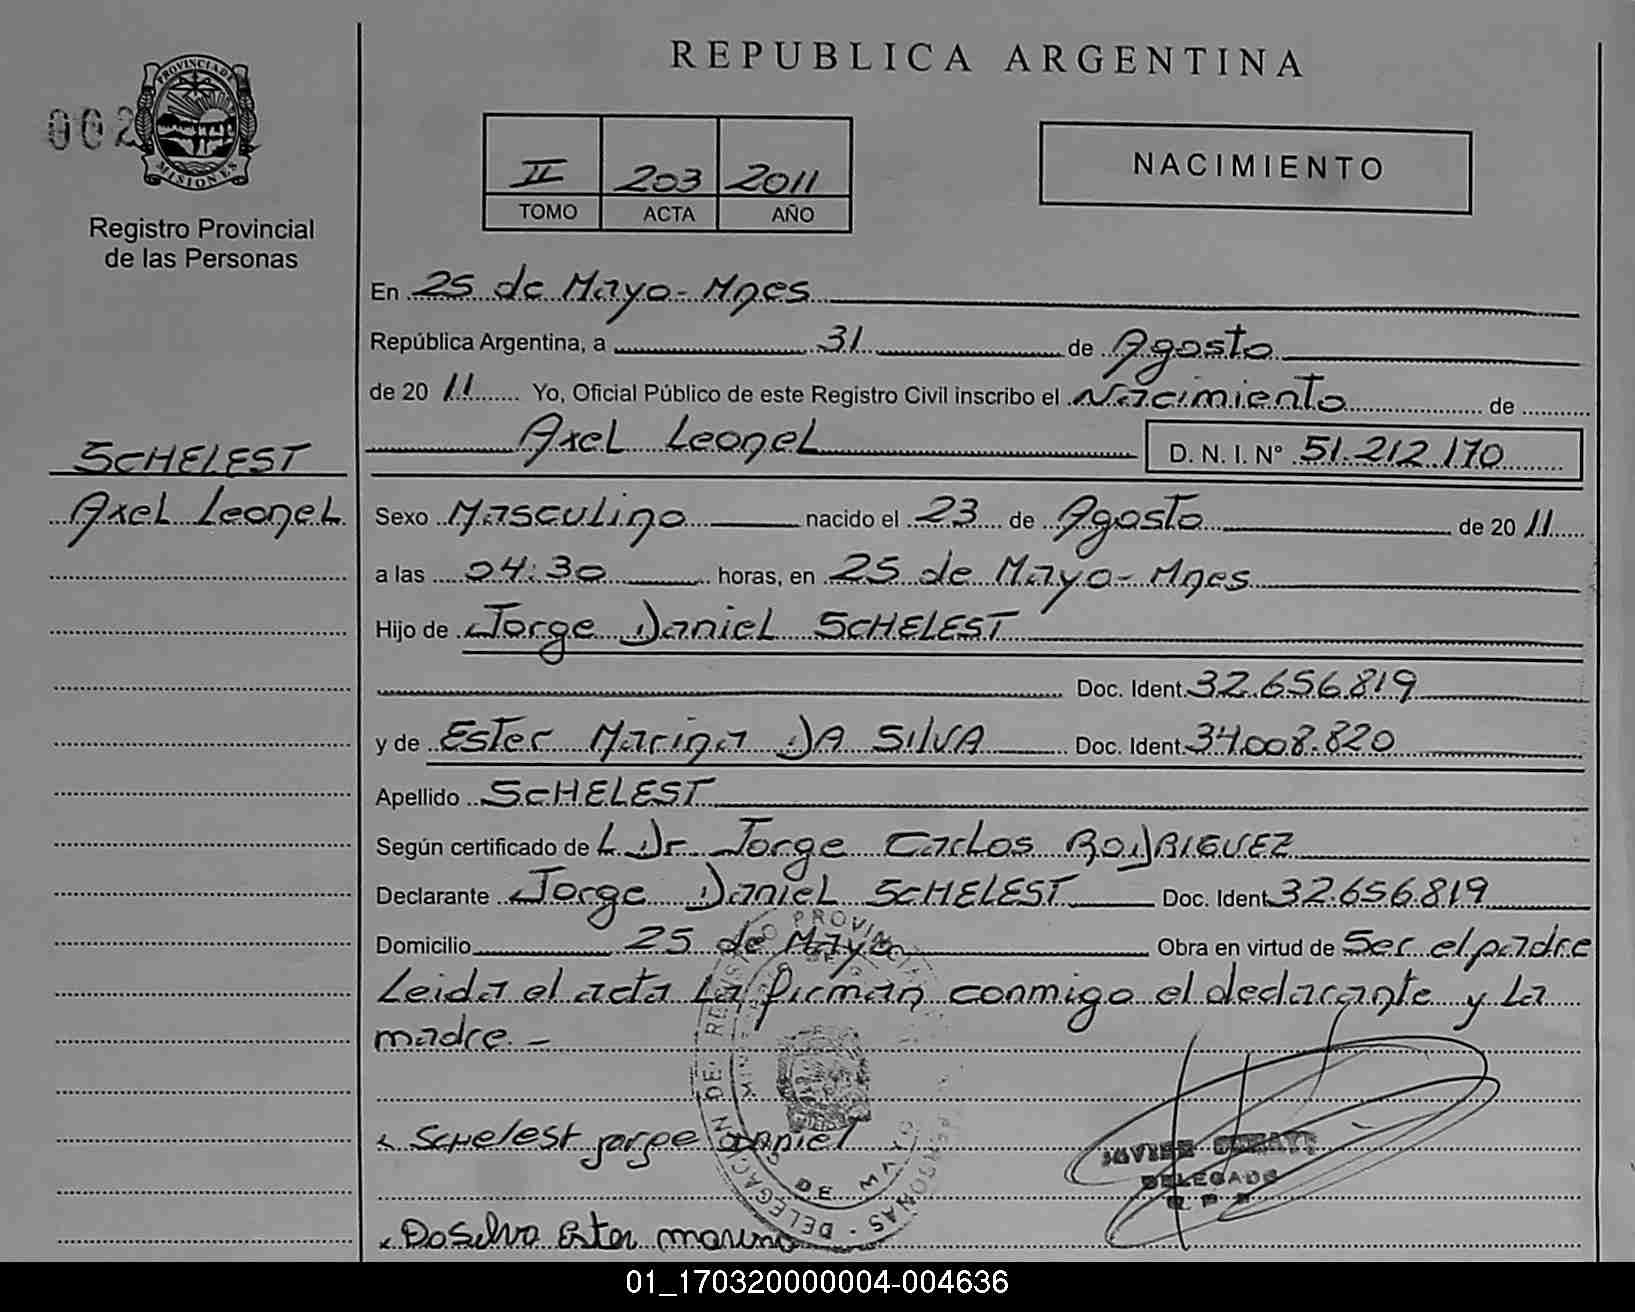 REPUBLICA ARGENTINA
002
PROVINCIA DE
MISIONES
Registro Provincial
de las Personas
II 203 2011
TOMO ACTA AÑO
NACIMIENTO
En 25 de Mayo - Mnes
República Argentina, a 31 de Agosto
de 20 11 Yo, Oficial Público de este Registro Civil inscribo el Nacimiento de
Axel Leonel D. N. I. N° 51.212.170
SCHELEST
Axel Leonel
Sexo Masculino nacido el 23 de Agosto de 20 11
a las 04:30 horas, en 25 de Mayo - Mnes
Hijo de Jorge Daniel SCHELEST
Doc. Ident. 32.656.819
y de Ester Marina DA SILVA Doc. Ident. 34.008.820
Apellido SCHELEST
Según certificado de L. Dr Jorge Carlos RODRIGUEZ
Declarante Jorge Daniel SCHELEST Doc. Ident. 32.656.819
Domicilio 25 de Mayo Obra en virtud de Ser el padre
Leida el acta la firman conmigo el declarante y la
madre. -
Schelest jorge Daniel
JAVIER
DELEGADO
R P P
Da Silva Ester marina
DELEGACIÓN DE
DE MAYO
01_170320000004-004636